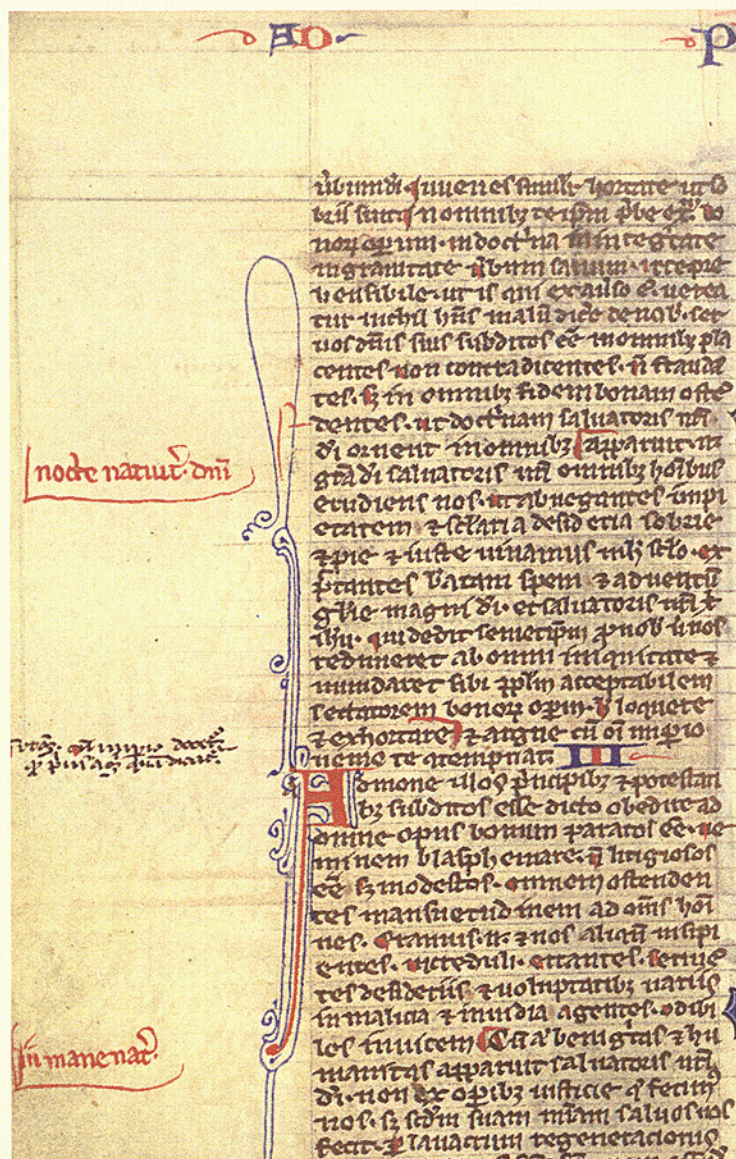 AD
P
ŭbum dī. Iuuenes simīlr hortare ut so
brii sint. in omnibꝫ te ip̄m p̄be ex̄ bo
noꝝ opum. in doctͥna in integͥtate
in grauitate ŭbum sanum. irrepre
hensibile. ut is qui ex aduso ē. uerea
tur nichil hn̄s malū dicͤe de nob̄. ser
uos dn̄is suis subditos eē in omnibꝫ pla
centes. non contradicentes. n̄ frauda
tes. sꝫ in omnibꝫ fidem bonam oste
dentes. ut doctͥnam saluatoris nr̄i
di ornent in omnibꝫ. apparuit .n.
gr̄a dī saluatoris nr̄i omnibꝫ hoibus
erudiens nos. ut abnegantes impi
etatem ⁊ sc̄laria desideria sobrie
⁊ pie ⁊ iuste uiuamus in hͦ sc̄lo. ex
p̄tantes b̄atam spem ⁊ aduentū
glīe magni dī. et saluatoris nr̄i x̄
ihū. qui dedit semetip̄m ꝓ nob̄ ŭ nos
redimeret ab omni iniquitate ⁊
mundaret sibi ppl̄m acceptabilem
sectatorem bonoꝝ opum. h̄ loquere
⁊ exhortare. ⁊ argue cū oī impio
nemo te ꝯtempnat. III
Admone illos p̄ncipibꝫ ⁊ potestati
bꝫ subditos esse dicto obedire ad
omne opus bonum paratos eē. ne
minem blasphemare. n̄ litigiosos
eē sꝫ modestos. omnem ostenden
tes mansuetudinem ad om̄s hoi
nes. Eramus .n. ⁊ nos aliqn̄ insipi
entes. increduli. errantes. seruie
tes desideriis ⁊ uoluptatibꝫ uariis
in malicia ⁊ inuidia agentes. odibi
les inuicem. Cū aͫ benigͥtas ⁊ hu
manitas apparuit saluatoris nr̄i
dī. non ex opibꝫ iusticie q̄ fecim
nos. sꝫ scd̄m suam mīam saluos nos
fecit. ꝑ lauacrum regeneracionis
nocte natiuit̄. dn̄i
In mane nat̄.